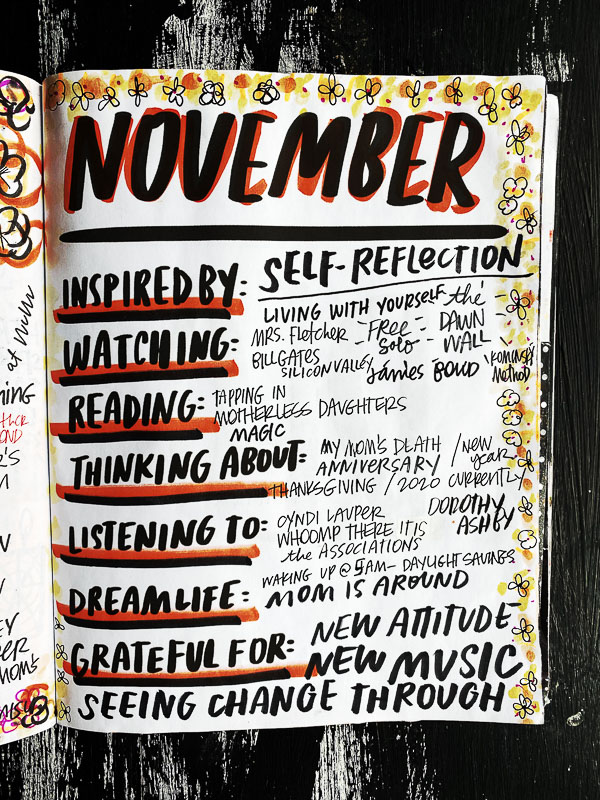 NOVEMBER
INSPIRED BY: SELF-REFLECTION
WATCHING: LIVING WITH YOURSELF the
MRS. FLetcher - FRee Solo - DAWN WALL
BILL GATES
SILICON VALLEY / JAMES BOND Kominsky Method
READING: TAPPING IN
MOTHERLESS DAUGHTERS
MAGIC
THINKING ABOUT: MY MOM'S DEATH ANNIVERSARY / NEW year
THANKSGIVING / 2020 CURRENTLY
LISTENING TO: CYNDI LAUPER DOROTHY ASHBY
WHOOMP THERE IT IS
the ASSOCIATIONS
DREAMLIFE: WAKING UP @ 5AM - DAYLIGHT SAVINGS
MOM IS AROUND
GRATEFUL FOR: NEW ATTITUDE
NEW MUSIC
SEEING CHANGE THROUGH